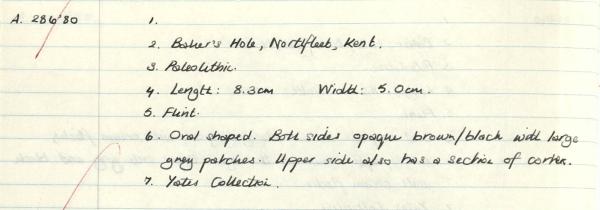 A. 286'80 1.
2. Baker's Hole, Northfleet, Kent.
3. Paleolithic.
4. Length: 8.3cm Width: 5.0cm.
5. Flint.
6. Oval shaped. Both sides opaque brown/black with large
grey patches. Upper side also has a section of cortex.
7. Yates Collection.